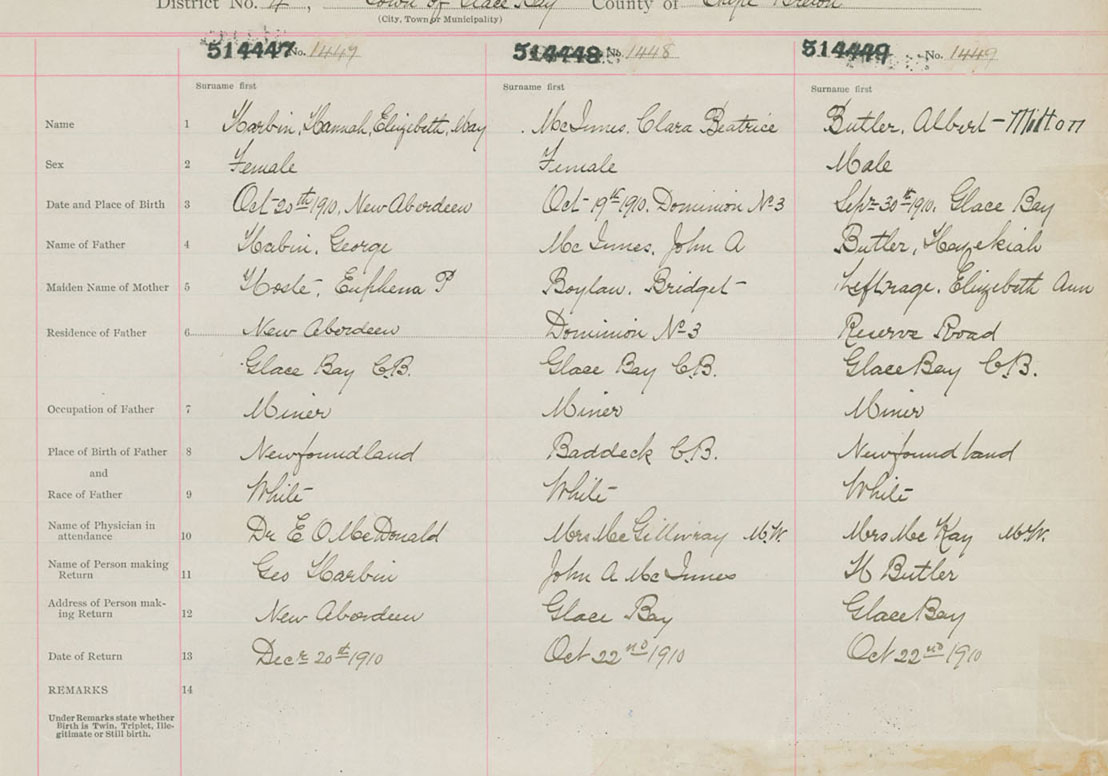 District No. 4, Town of Glace Bay County of Cape Breton
(City, Town or Municipality)
514447 No. 1449 514448 No. 1448 514449 No. 1449
Surname first Surname first Surname first
Name 1 Harbin, Hannah, Elizebeth, May McInnes, Clara Beatrice Butler, Albert - Milton
Sex 2 Female Female Male
Date and Place of Birth 3 Oct 20th 1910, New Aberdeen Oct 19th 1910. Dominion No 3 Sept 30th 1910, Glace Bay
Name of Father 4 Habin, George McInnes, John A Butler, Hezekiah
Maiden Name of Mother 5 Euphena P Boylan, Bridget Elizebeth Ann
Residence of Father 6 New Aberdeen Dominion No 3 Reserve Road
Glace Bay C.B. Glace Bay C.B. Glace Bay C.B.
Occupation of Father 7 Miner Miner Miner
Place of Birth of Father 8 Newfoundland Baddeck C.B. Newfoundland
and
Race of Father 9 White White White
Name of Physician in attendance 10 Dr E O McDonald Mrs McGillivray M.W. Mrs McKay M.W.
Name of Person making Return 11 Geo Harbin John A McInnes H Butler
Address of Person mak-ing Return 12 New Aberdeen Glace Bay Glace Bay
Date of Return 13 Decr 20th 1910 Oct 22nd 1910 Oct 22nd 1910
REMARKS 14
Under Remarks state whether
Birth is Twin, Triplet, Ille-
gitimate or Still birth.